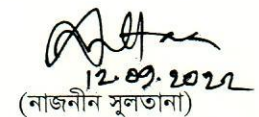 12.09.2022
(নাজনীন সুলতানা)